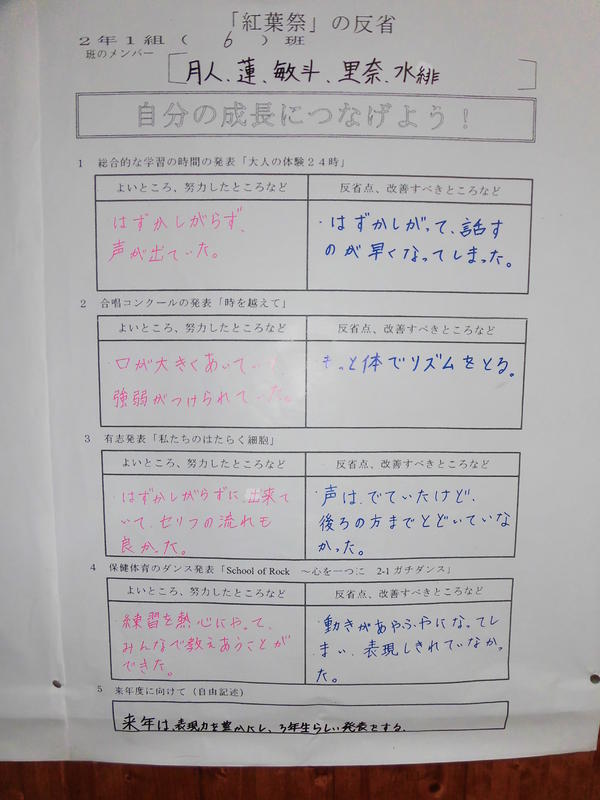 「紅葉祭」の反省
2年1組( 6 )班
班のメンバー
月人、蓮、敏斗、里奈、水緋
自分の成長につなげよう！
1 総合的な学習の時間の発表「大人の体験24時」
よいところ、努力したところなど 反省点、改善すべきところなど
はずかしがらず、
声が出ていた。
・はずかしがって、話す
のが早くなってしまった。
2 合唱コンクールの発表「時を越えて」
よいところ、努力したところなど 反省点、改善すべきところなど
・口が大きくあいていて、
強弱がつけられていた。
もっと体でリズムをとる。
3 有志発表「私たちのはたらく細胞」
よいところ、努力したところなど 反省点、改善すべきところなど
・はずかしがらずに、出来て
いて、セリフの流れも
良かった。
・声は、でていたけど、
後ろの方までとどいていな
かった。
4 保健体育のダンス発表「School of Rock ～心を一つに 2-1ガチダンス」
よいところ、努力したところなど 反省点、改善すべきところなど
・練習を熱心にやって、
みんなで教えあうことが
できた。
・動きがあやふやになってし
まい、表現しきれていなかっ
た。
5 来年度に向けて（自由記述）
来年は、表現力を豊かにし、3年生らしい発表をする。